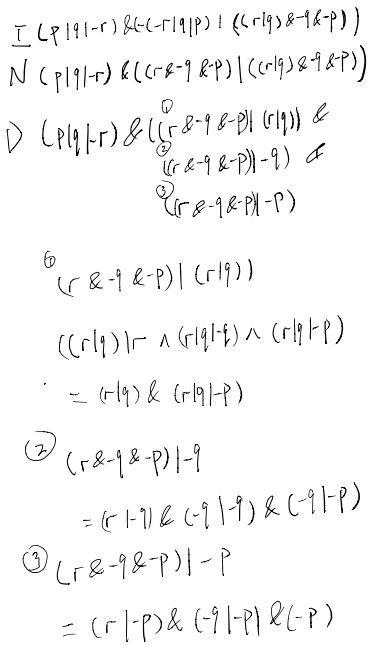 I (p|q|-r) & (-(-r|q|p) | ((r|q) & -q & -p))
N (p|q|-r) & ((r & -q & -p) | ((r|q) & -q & -p))
D (p|q|-r) & (① ((r & -q & -p) | (r|q)) &
② ((r & -q & -p) | -q) &
③ ((r & -q & -p) | -p)
① (r & -q & -p) | (r|q))
((r|q) | r ∧ (r|q|-q) ∧ (r|q|-p)
= (r|q) & (r|q|-p)
② (r & -q & -p) | -q
= (r|-q) & (-q|-q) & (-q|-p)
③ (r & -q & -p) | -p
= (r|-p) & (-q|-p) & (-p)